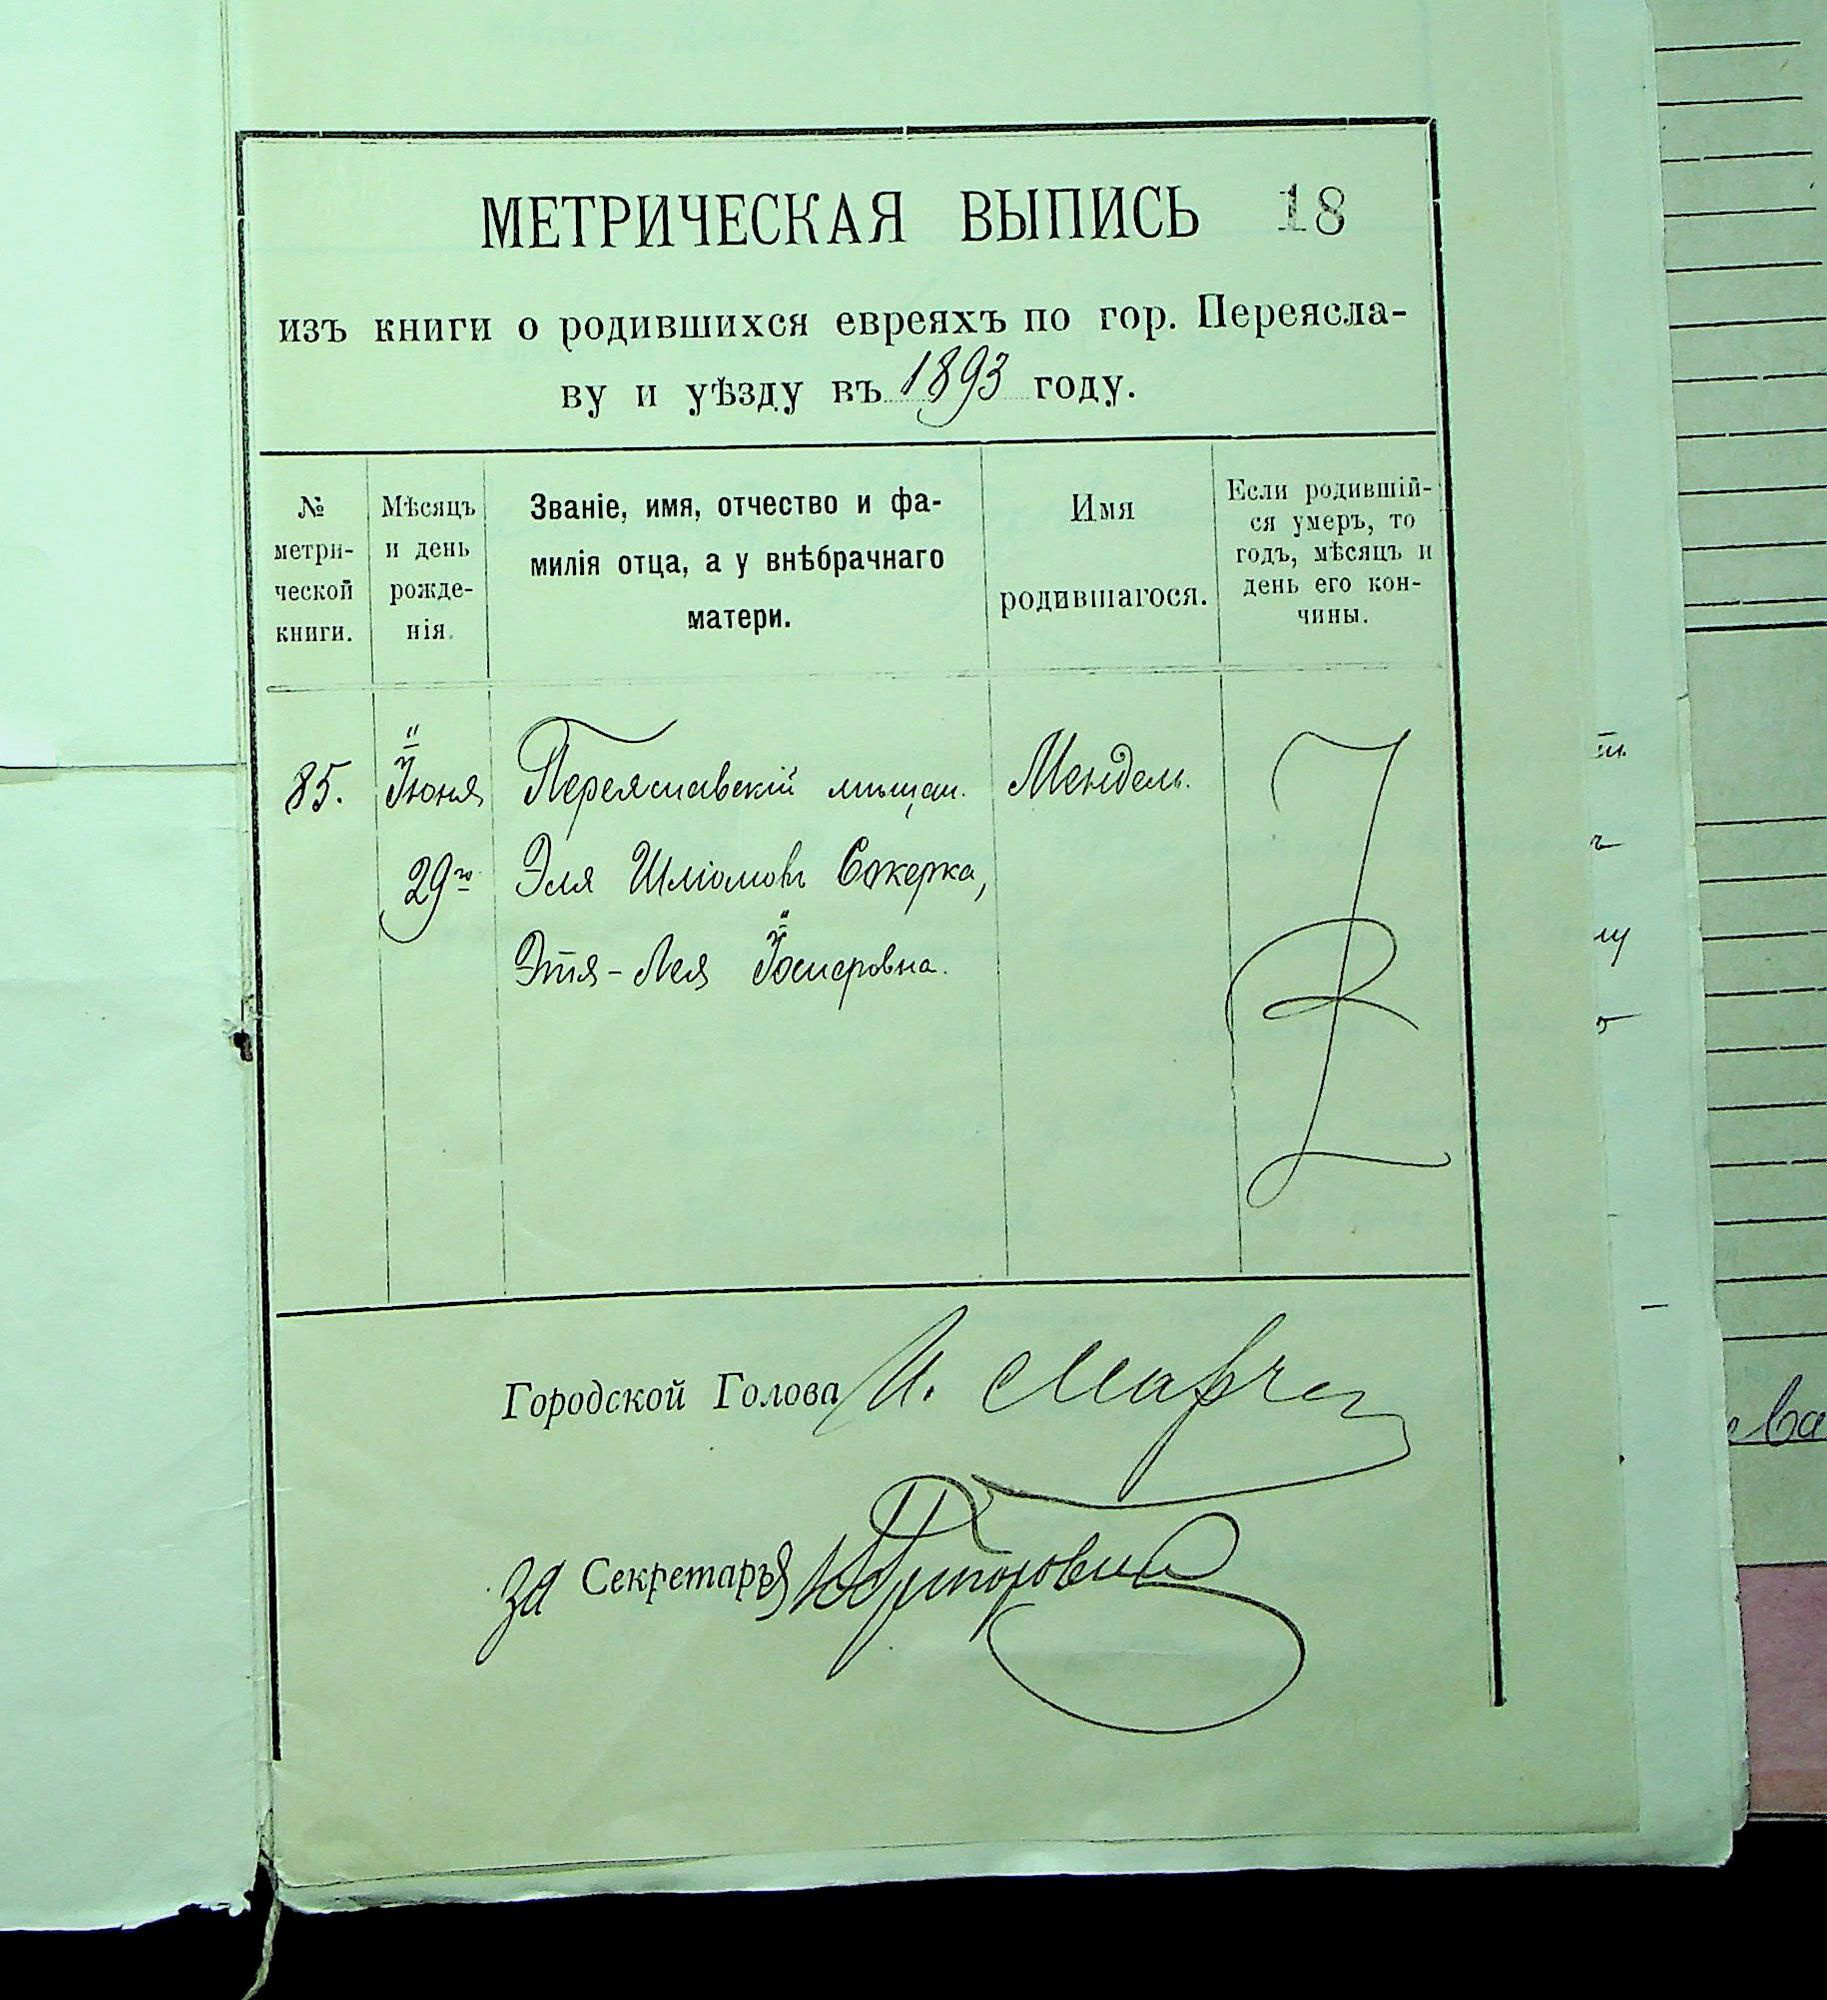 МЕТРИЧЕСКАЯ ВЫПИСЬ 18
изъ книги о родившихся евреяхъ по гор. Переясла-
ву и уѣзду въ 1893 году.
№
метри-
ческой
книги.
Мѣсяцъ
и день
рожде-
нія.
Званіе, имя, отчество и фа-
милія отца, а у внѣбрачнаго
матери.
Имя
родившагося.
Если родившій-
ся умеръ, то
годъ, мѣсяцъ и
день его кон-
чины.
85.
Іюня
29го
Переяславскій мѣщан.
Эля Шліомовъ Сокерка,
Этя-Лея
Мендель.
Городской Голова И.
за Секретаря